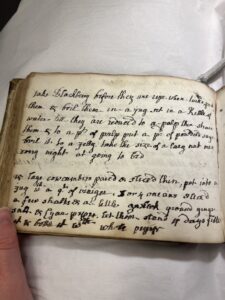 take Blackberry before they are ripe when
them & boil them in a Jug set in a Kettle of
water till they are reduced to a pulp then strain
them & to a pt of pulp put a pd of powder sug
boil it to a Jelly take the size of a large nut
night at going to bed
Large cowcumbers pared & sliced thin, put into a
Jug a qt of vinegar 3 or 4 onions sliced
a few shallots & a little garlick ground ginge
salt & Cyan pepper, let them stand days
& bottle it with white pepper